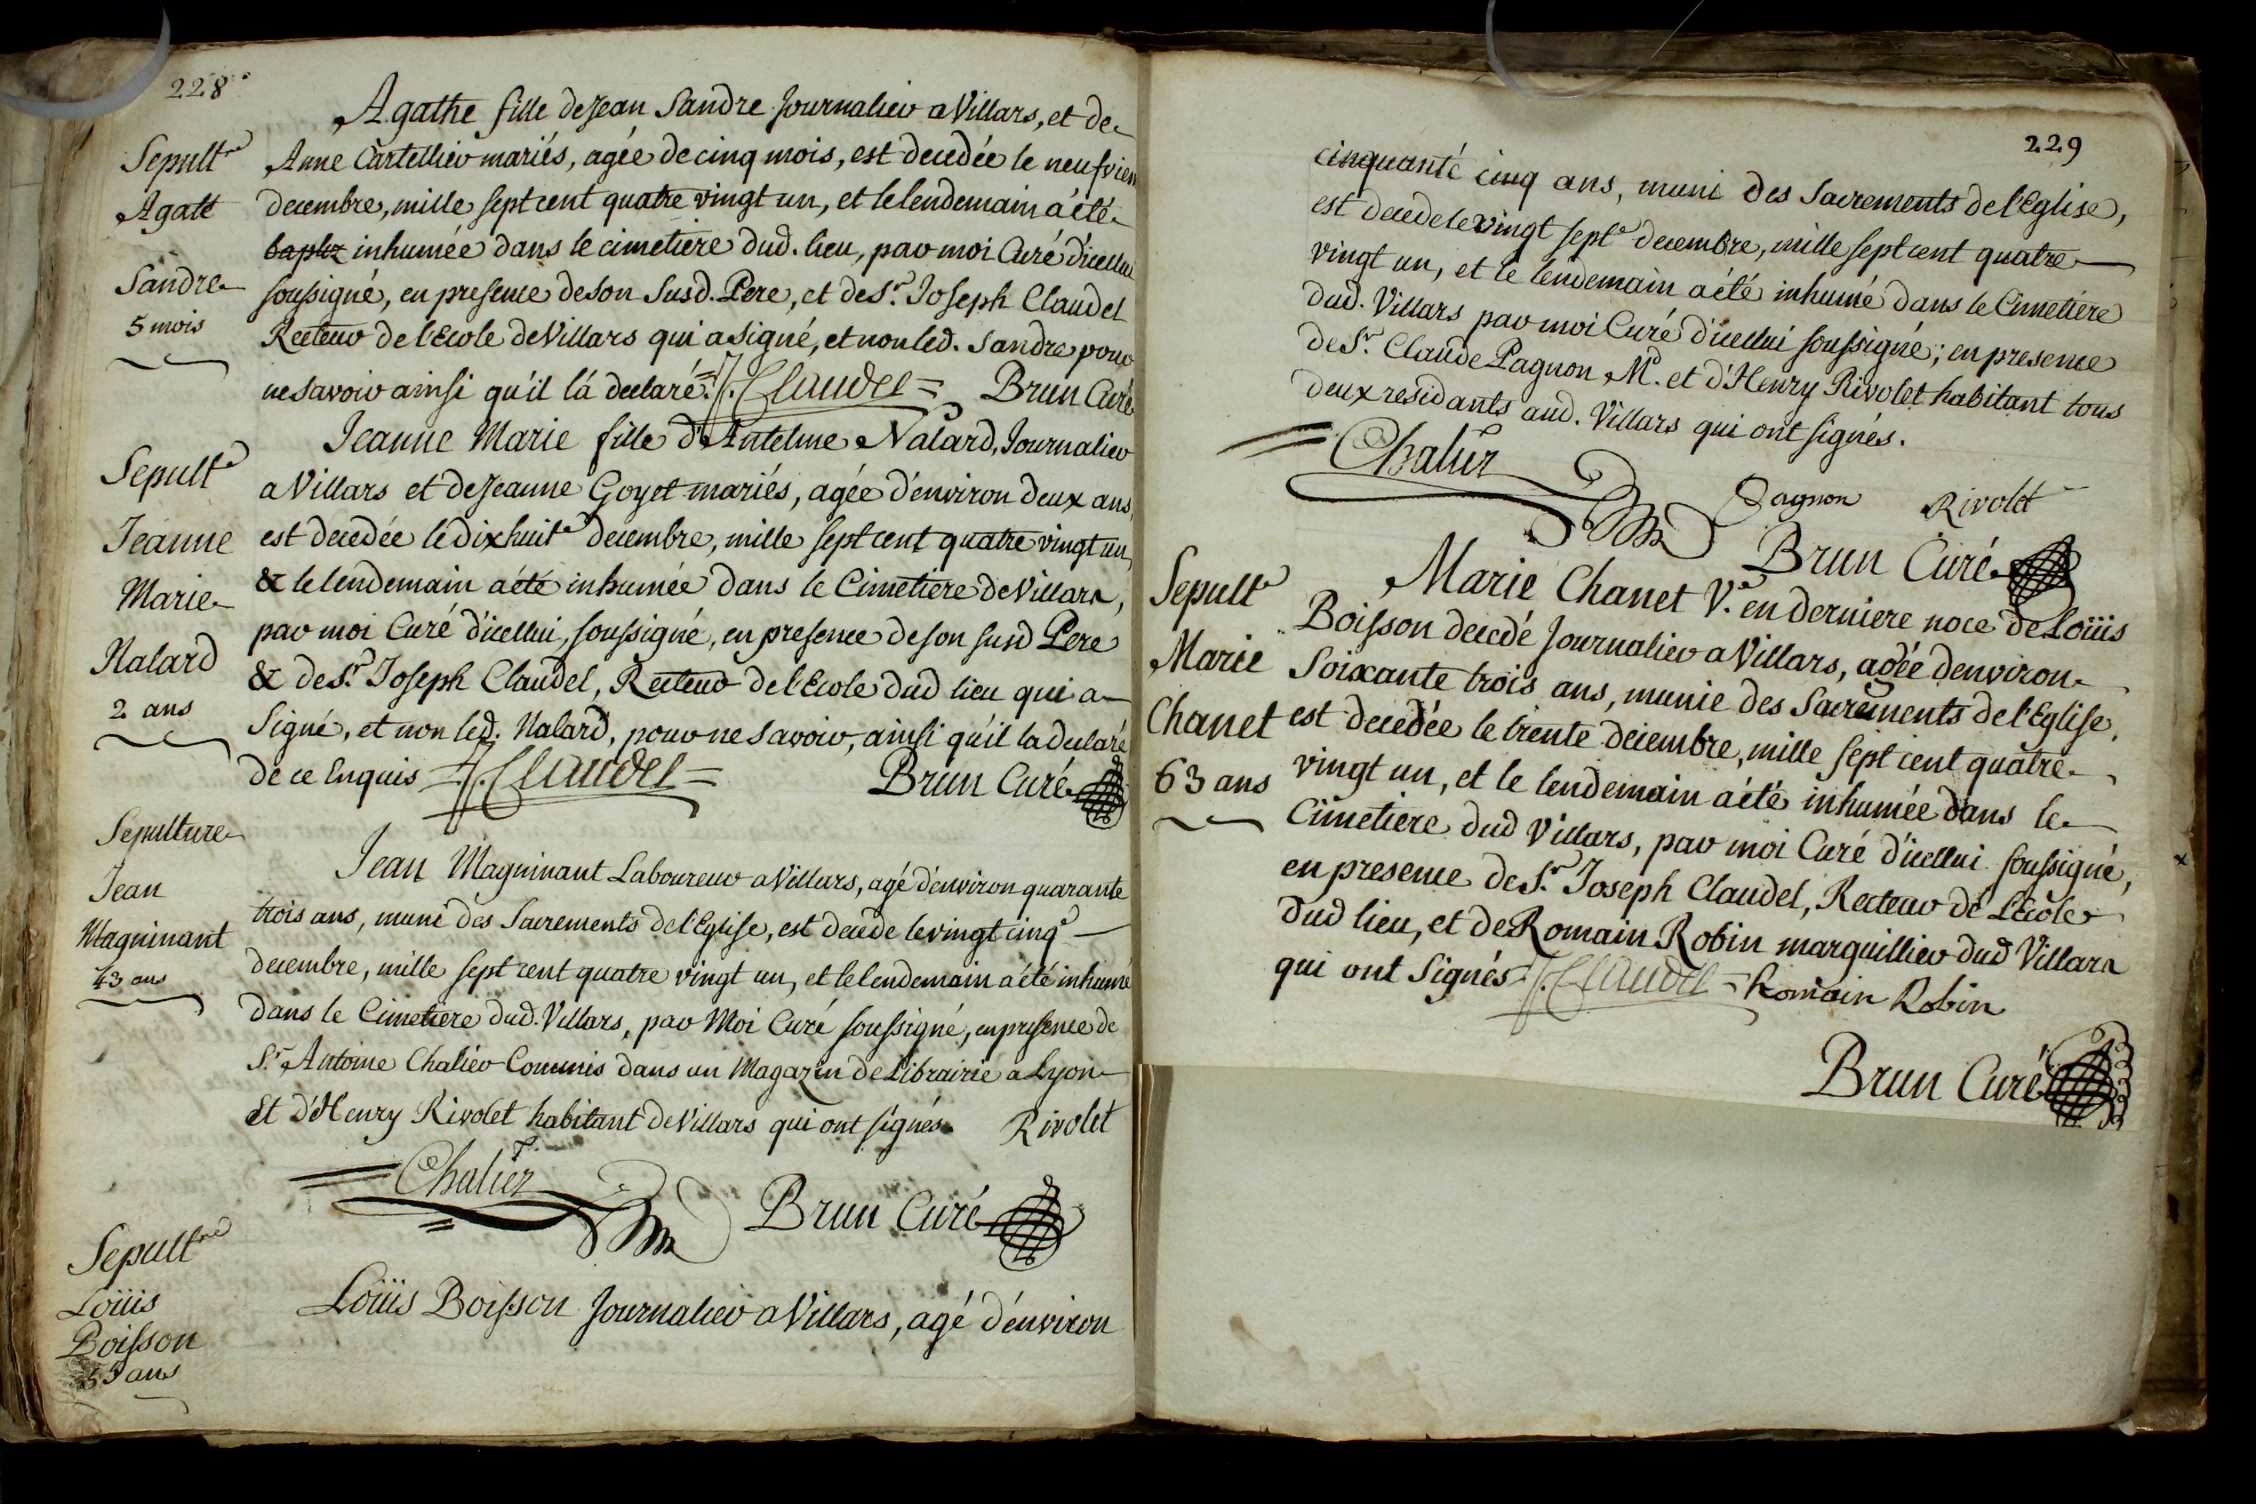 228
Sepult.re
Agate
Sandre
5 mois
Agathe fille de Jean Sandre Journalier a Villars, et de
Anne Cartellier mariés, agée de cinq mois, est decedée le neufviem
decembre, mille sept cent quatre vingt un, et le lendemain a été
baptiz inhumée dans le cimetiere dud. lieu, par moi Curé d'icellui
soussigné, en presence de son susd. Pere, et de S.r Joseph Claudel
Recteur de l'Ecole de Villars qui a signé, et non led. Sandre pour
ne savoir ainsi qu'il l'a declaré. J. Claudel Brun Curé
Sepult.e
Jeanne
Marie
Nalard
2 ans
Jeanne Marie fille d'Antelme Nalard, Journalier
a Villars et de Jeanne Goyet mariés, agée d'environ deux ans,
est decedée le dix huit.e decembre, mille sept cent quatre vingt un,
& le lendemain a été inhumée dans le Cimetiere de Villars,
par moi Curé d'icellui, soussigné, en presence de son susd Pere
& de S.r Joseph Claudel, Recteur de l'Ecole dud lieu qui a
Signé, et non led. Nalard, pour ne savoir, ainsi qu'il la declaré
de ce Enquis J. Claudel Brun Curé
Sepulture
Jean
Maguinant
43 ans
Jean Maguinant Laboureur a Villars, agé d'environ quarante
trois ans, muni des Sacrements de l'Eglise, est decede le vingt cinq.e
decembre, mille sept cent quatre vingt un, et le lendemain a été inhumé
dans le Cimetiere dud. Villars, par Moi Curé soussigné, en presence de
S.r Antoine Chalier Commis dans un Magazin de Librairie a Lyon
Et d'Henry Rivolet habitant de Villars qui ont signés. Rivolet
Chalier Brun Curé
Sepult.re
Loüis
Boisson
55 ans
Loüis Boisson Journalier a Villars, agé d'environ
229
cinquante cinq ans, muni des Sacrements de l'Eglise,
est decede le vingt sept.e decembre, mille sept cent quatre
vingt un, et le lendemain a été inhumé dans le Cimetiere
dud. Villars par moi Curé d'icellui soussigné; en presence
de S.r Claude Pagnon M.d et d'Henry Rivolet habitant tous
deux residants aud. Villars qui ont signés.
Chalier
Pagnon Rivolet
Brun Curé
Sepult.e
Marie
Chanet
63 ans
Marie Chanet V.e en derniere noce de Loüis
Boisson decedé Journalier a Villars, agée d'environ
Soixante trois ans, munie des Sacrements de l'Eglise,
est decedée le trente decembre, mille sept cent quatre
vingt un, et le lendemain a été inhumée dans le
Cimetiere dud Villars, par moi Curé d'icellui soussigné,
en presence de S.r Joseph Claudel, Recteur de L'Ecole
dud lieu, et de Romain Robin marguillier dud Villars
qui ont Signés J. Claudel Romain Robin
Brun Curé